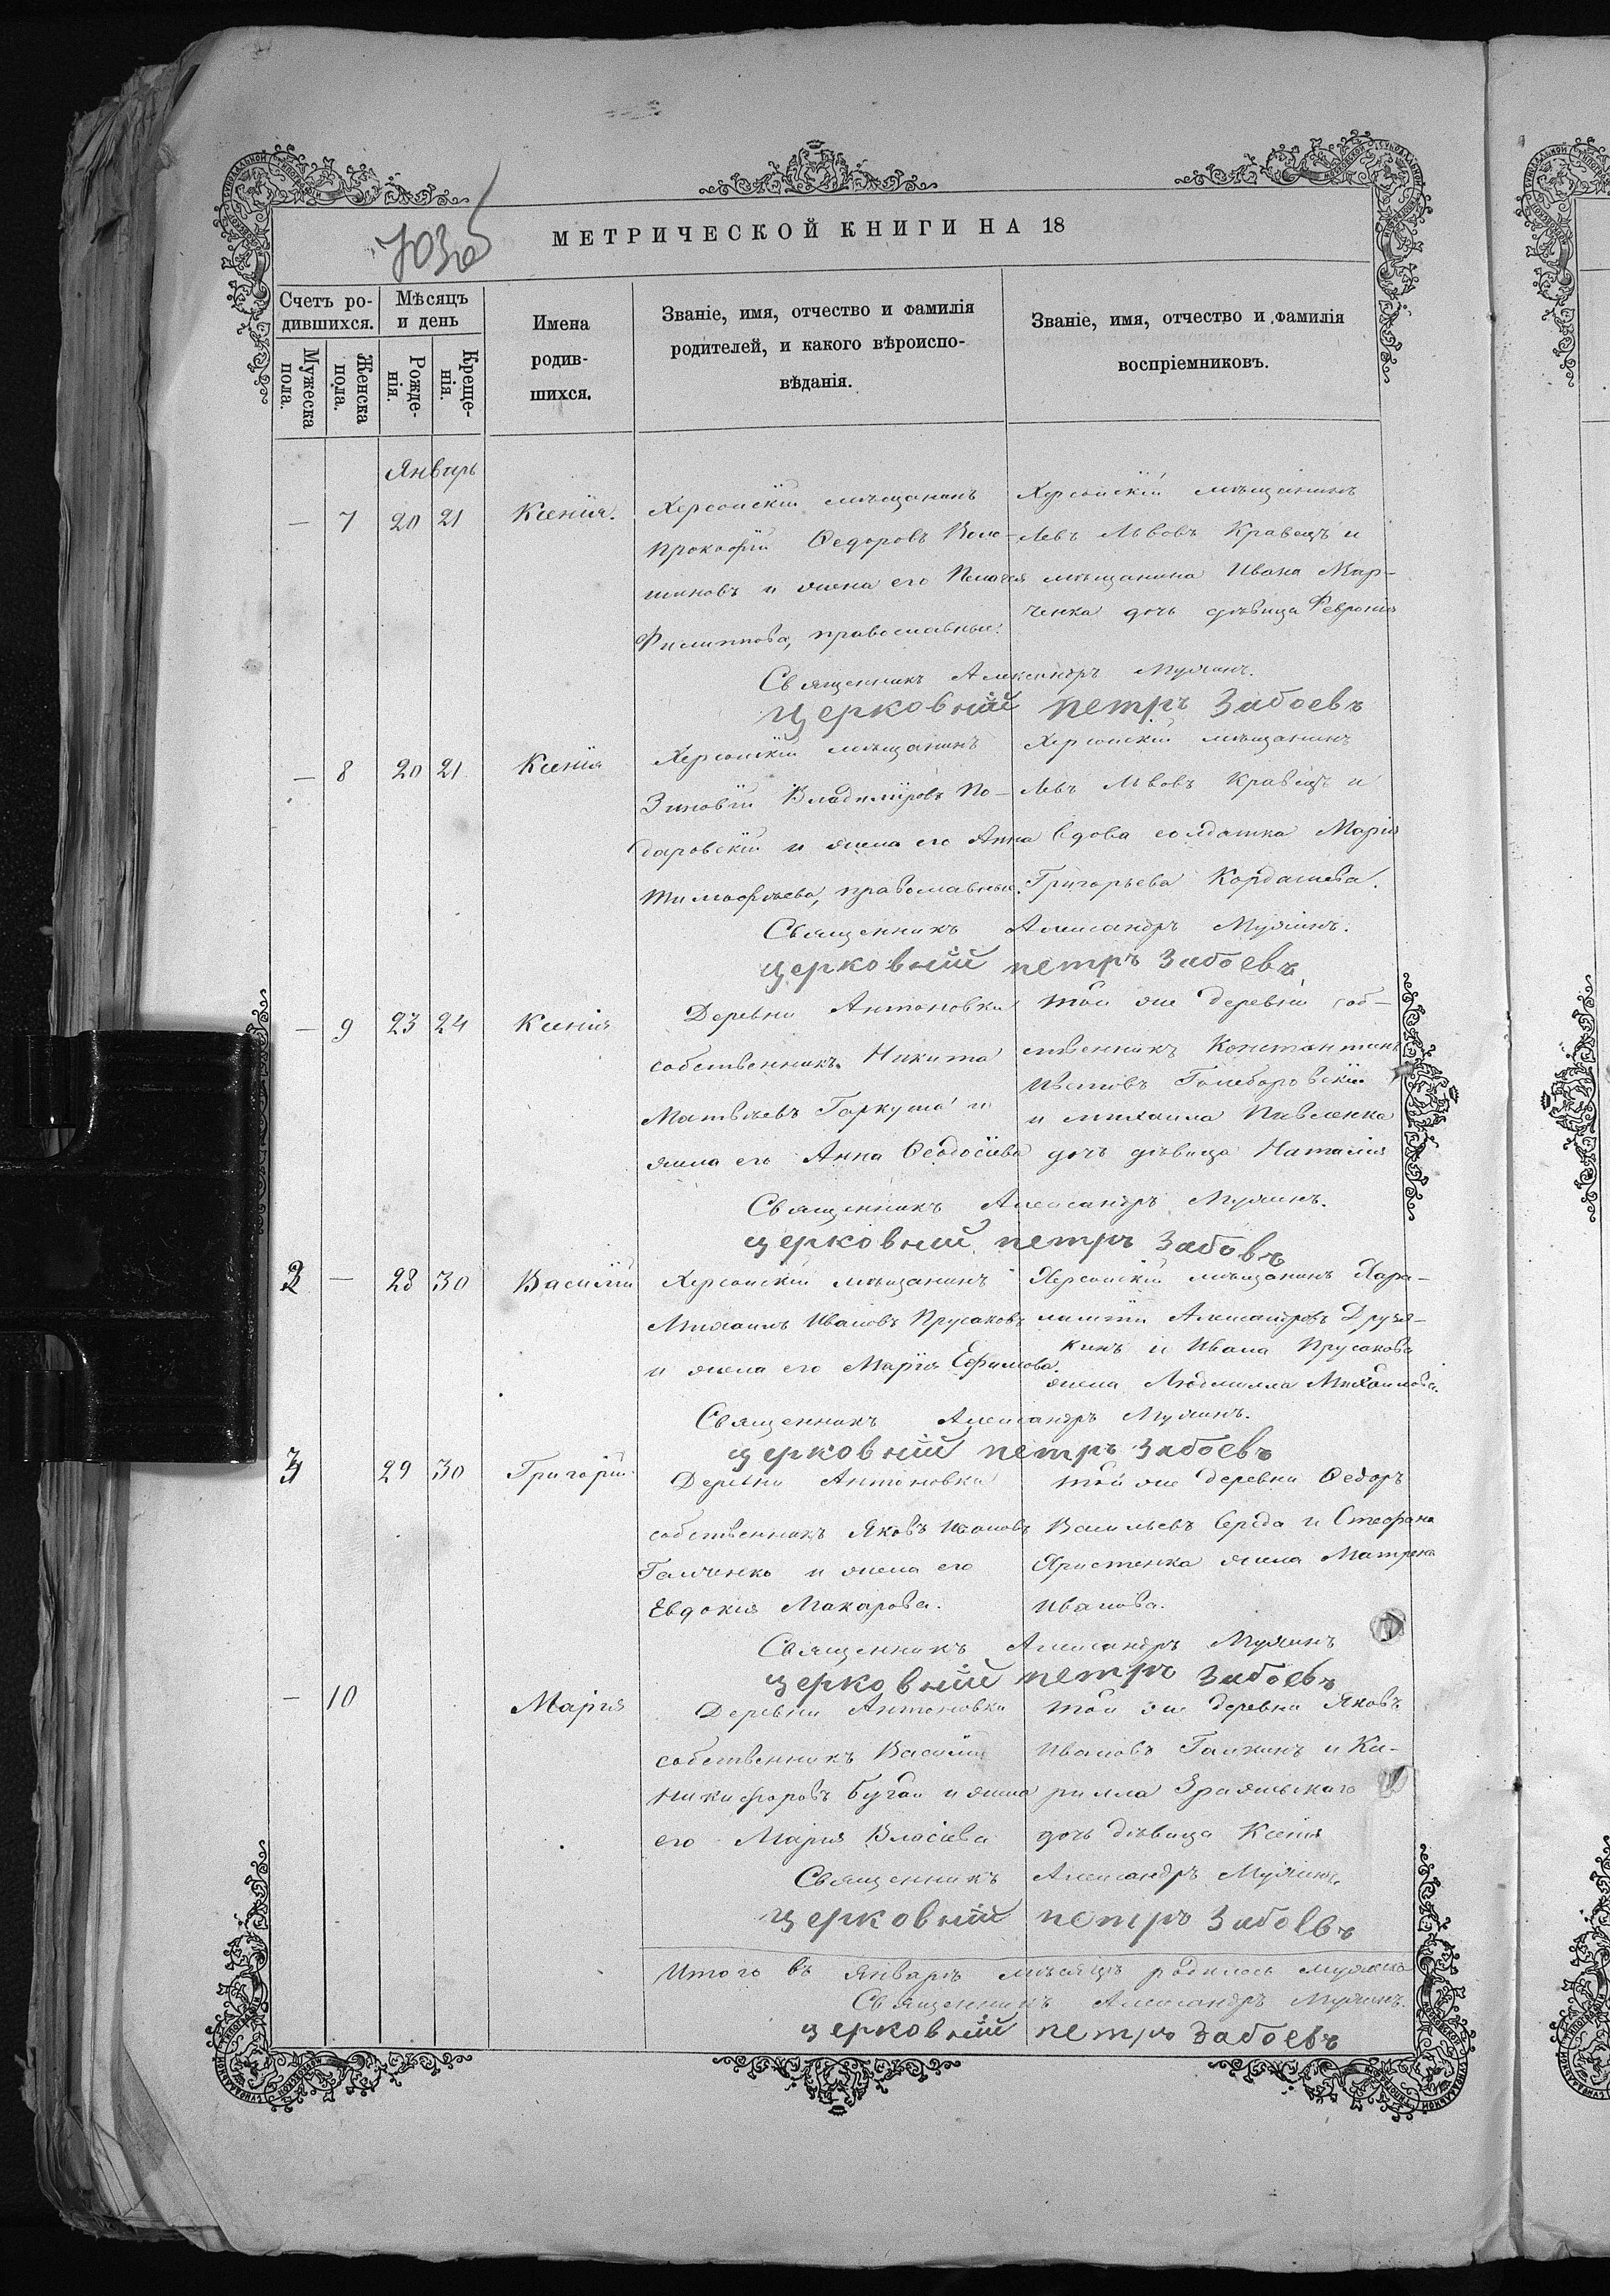 703 об
МЕТРИЧЕСКОЙ КНИГИ НА 18
Счетъ ро-
дившихся.
Мужеска
пола.
Женска
пола.
Мѣсяцъ
и день
Рожде-
нія.
Креще-
нія.
Имена
родив-
шихся.
Званіе, имя, отчество и фамилія
родителей, и какого вѣроиспо-
вѣданія.
Званіе, имя, отчество и фамилія
воспріемниковъ.
Январь
— 7 20 21 Ксенія.
Херсонскій мѣщанинъ
Прокофій Ѳедоровъ
и жена его Пелагея
Филиппова, православные.
Херсонскій мѣщанинъ
Левъ Львовъ Кравецъ и
мѣщанина Ивана Мар-
ченка дочь дѣвица Февронія
Священникъ Александръ
Церковній петръ Забоевъ
— 8 20 21 Ксенія
Херсонскій мѣщанинъ
Зиновій Владиміровъ По-
даровскій и жена его Анна
Тимофѣева, православные.
Херсонскій мѣщанинъ
Левъ Львовъ Кравецъ и
вдова солдатка Марія
Григорьева Кордашева.
Священникъ Александръ
церковній петръ Забоевъ
— 9 23 24 Ксенія
Деревни Антоновки
собственникъ Никита
Матвѣевъ Гаркуша и
жена его Анна Ѳеодосіева
той же деревни соб-
ственникъ Константинъ
и Михаила Павленка
дочь дѣвица Наталія
Священникъ Александръ
церковній петръ Забовъ
2 — 28 30 Василій
Херсонскій мѣщанинъ
Михаилъ Ивановъ Прусаковъ
и жена его Марія Ефимова.
Херсонскій мѣщанинъ Хара-
лампій Александровъ Друзя-
кинъ и Ивана Прусакова
жена Людмилла Михаилова.
Священникъ Александръ
церковній петръ Забоевъ
3 29 30 Григорій
Деревни Антоновки
собственникъ Яковъ Ивановъ
Галченко и жена его
Евдокія Макарова.
той же деревни Ѳедоръ
Васильевъ Середа и Стефана
Христенка жена Матрена
Иванова.
Священникъ Александръ
церковній петръ Забоевъ
— 10 Марія
Деревни Антоновки
собственникъ Василій
Никифоровъ Бугай и жена
его Марія Власіева
той же деревни Яковъ
Ивановъ и Ки-
рилла
дочь дѣвица Ксенія
Священникъ Александръ
церковній петръ Забоевъ
Итого въ Январѣ мѣсяцѣ родилось мужеска
Священникъ Александръ
церковній петръ Забоевъ